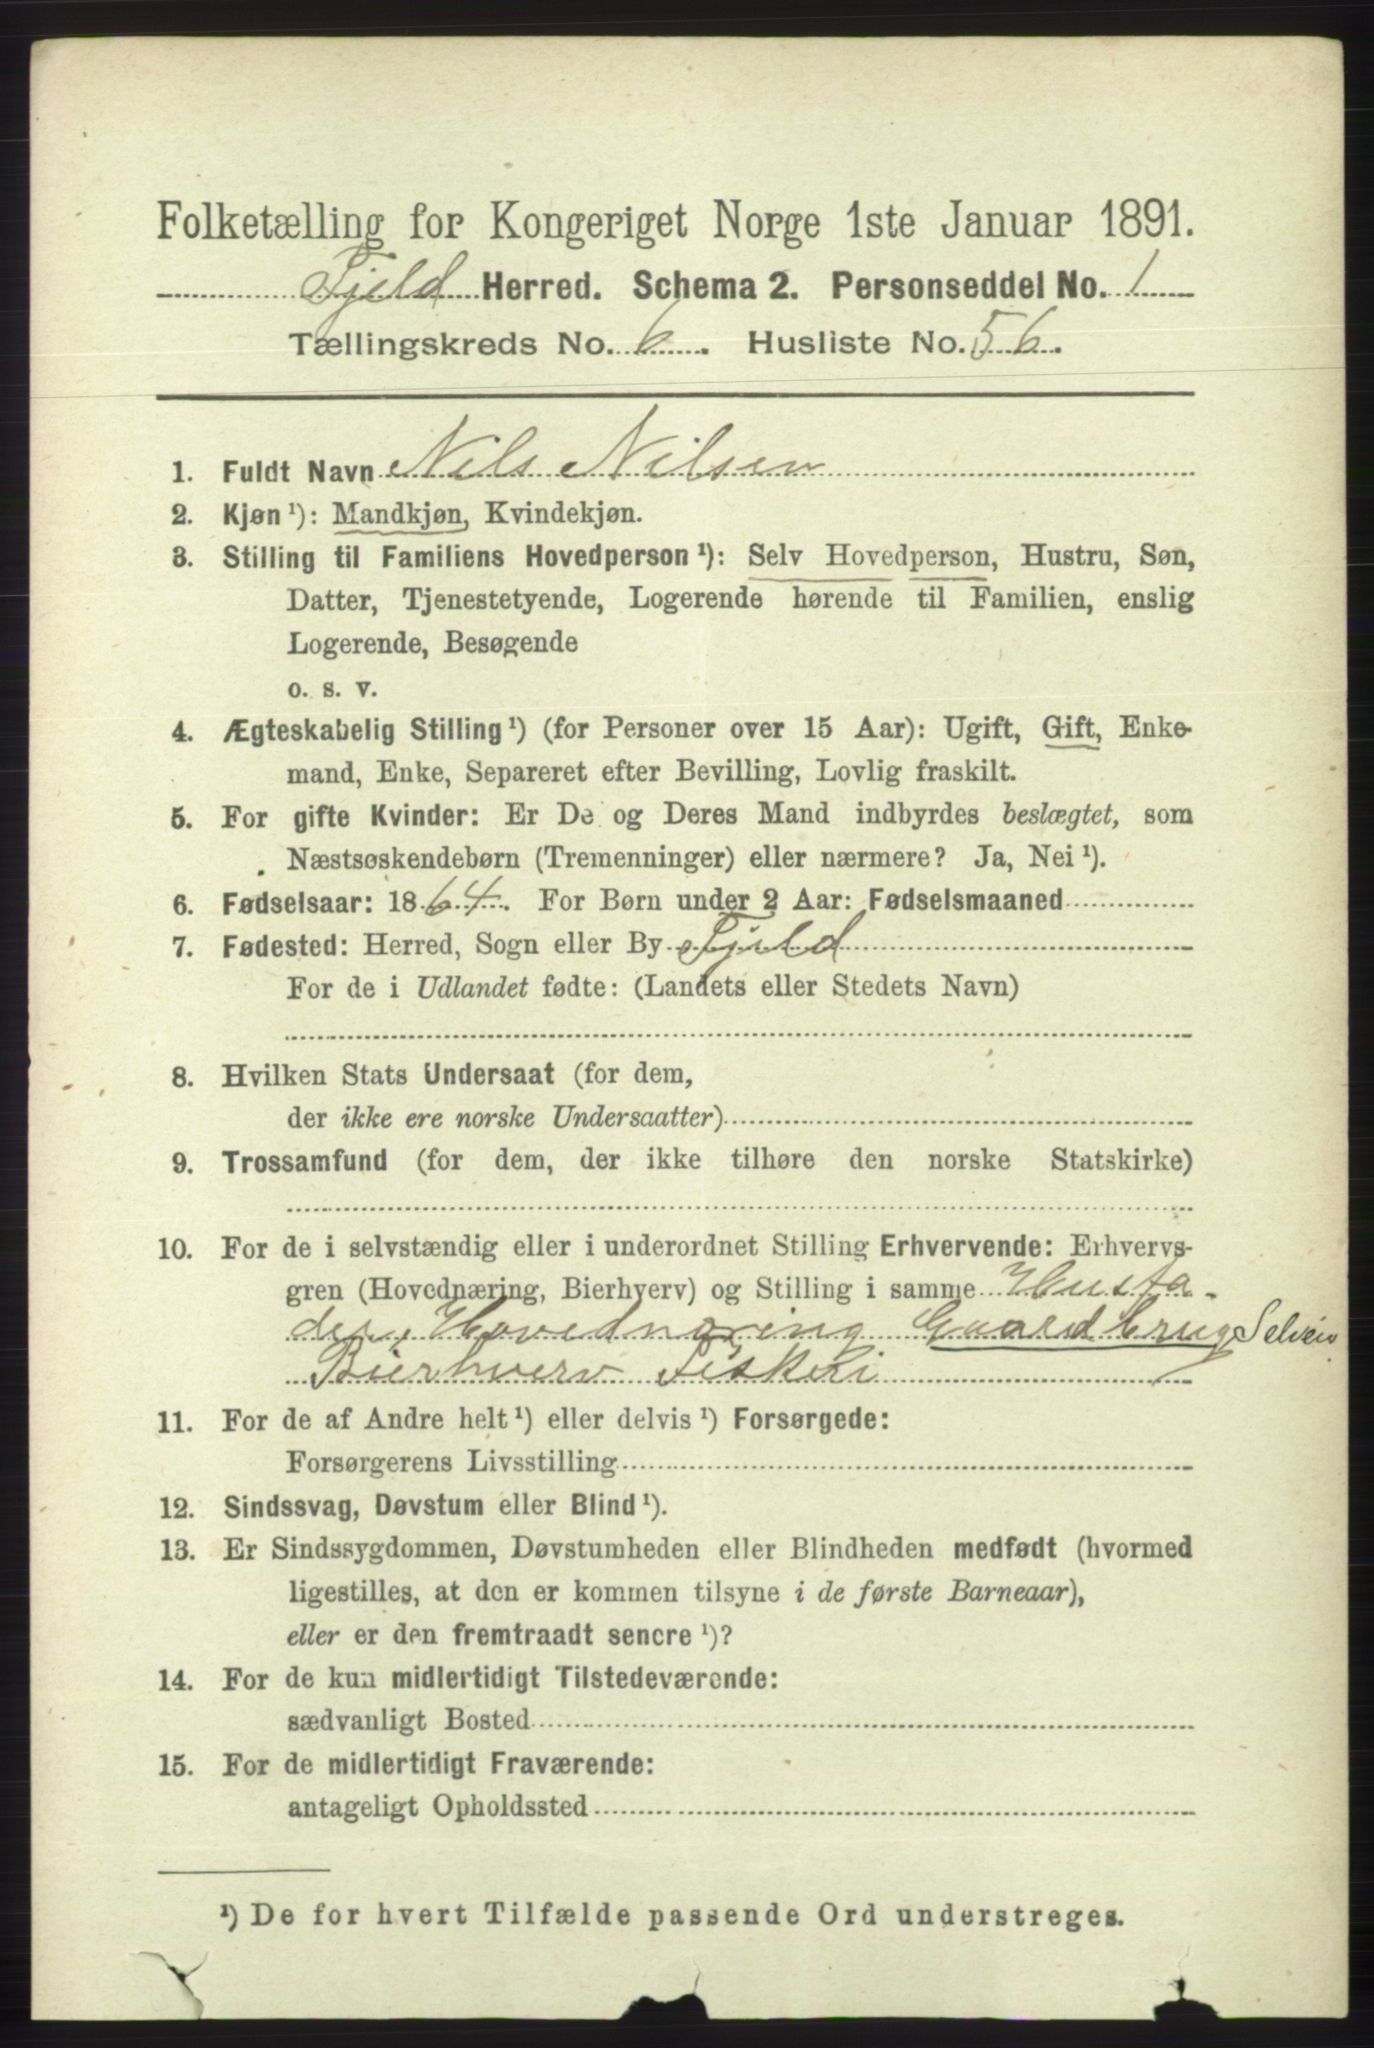 Folketælling for Kongeriget Norge 1ste Januar 1891.
Fjeld Herred. Schema 2. Personseddel No. 1
Tællingskreds No. 6. Husliste No. 56.
1. Fuldt Navn Nils Nilsen
2. Kjøn ¹): Mandkjøn, Kvindekjøn.
3. Stilling til Familiens Hovedperson ¹): Selv Hovedperson, Hustru, Søn,
Datter, Tjenestetyende, Logerende hørende til Familien, enslig
Logerende, Besøgende
o. s. v.
4. Ægteskabelig Stilling ¹) (for Personer over 15 Aar): Ugift, Gift, Enke-
mand, Enke, Separeret efter Bevilling, Lovlig fraskilt.
5. For gifte Kvinder: Er De og Deres Mand indbyrdes beslægtet, som
Næstsøskendebørn (Tremenninger) eller nærmere? Ja, Nei ¹).
6. Fødselsaar: 1864. For Børn under 2 Aar: Fødselsmaaned
7. Fødested: Herred, Sogn eller By Fjeld
For de i Udlandet fødte: (Landets eller Stedets Navn)
8. Hvilken Stats Undersaat (for dem,
der ikke ere norske Undersaatter)
9. Trossamfund (for dem, der ikke tilhøre den norske Statskirke)
10. For de i selvstændig eller i underordnet Stilling Erhvervende: Erhvervs-
gren (Hovednæring, Bierhverv) og Stilling i samme Husfa-
der, Hovednæring Gaardbrug Selveier
Bierhverv Fiskeri
11. For de af Andre helt ¹) eller delvis ¹) Forsørgede:
Forsørgerens Livsstilling
12. Sindssvag, Døvstum eller Blind ¹).
13. Er Sindssygdommen, Døvstumheden eller Blindheden medfødt (hvormed
ligestilles, at den er kommen tilsyne i de første Barneaar),
eller er den fremtraadt senere ¹)?
14. For de kun midlertidigt Tilstedeværende:
sædvanligt Bosted
15. For de midlertidigt Fraværende:
antageligt Opholdssted
¹) De for hvert Tilfælde passende Ord understreges.